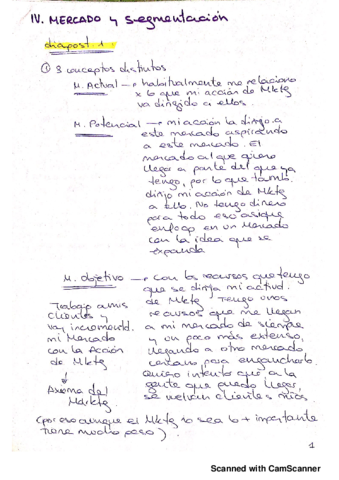 IV. MERCADO y segmentación
diapost. 1:
① 3 conceptos distintos
M. Actual → habitualmente me relaciono
x lo que mi acción de Mktg
va dirigido a ellos.
M. Potencial → mi acción la dirijo a
este mercado aspirando
a este mercado. El
mercado al que quiero
llegar a parte del que ya
tengo, por lo que tamb.
dirijo mi acción de Mktg
a ello. No tengo dinero
para todo eso asique
enfoco en un Mercado
con la idea que se
expanda
M. objetivo → con los recursos que tengo
que se dirija mi activid.
de Mktg. Tengo unos
recursos que me llegan
a mi mercado de siempre
y un poco más extenso,
llegando a otro mercado
cercano, para engancharlo.
quiero intento que a la
gente que puedo llegar,
se vuelvan clientes míos.
Trabajo a mis
clientes y
voy incrementd.
mi Mercado
con la Acción
de Mktg
↓
Axioma del
Marktg
(por eso aunque el Mktg no sea lo + importante
tiene mucho peso)
1
Scanned with CamScanner